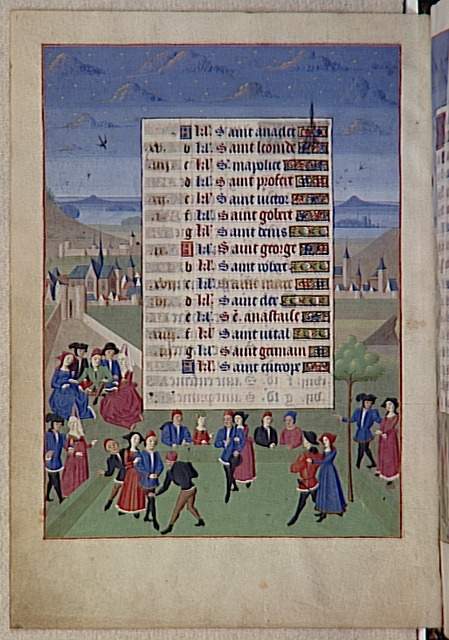 A kl. Saint anaclet
b kl. Saint leonide
c kl. S. mapolice
d kl. Saint profert
e kl. Saint victor
f kl. Saint gobert
g kl. Saint denis
A kl. Saint george
b kl. Saint robert
c kl. Saint marc
d kl. Saint clet
e kl. S. anastaise
f kl. Saint vital
g kl. Saint germain
A kl. Saint eutrope